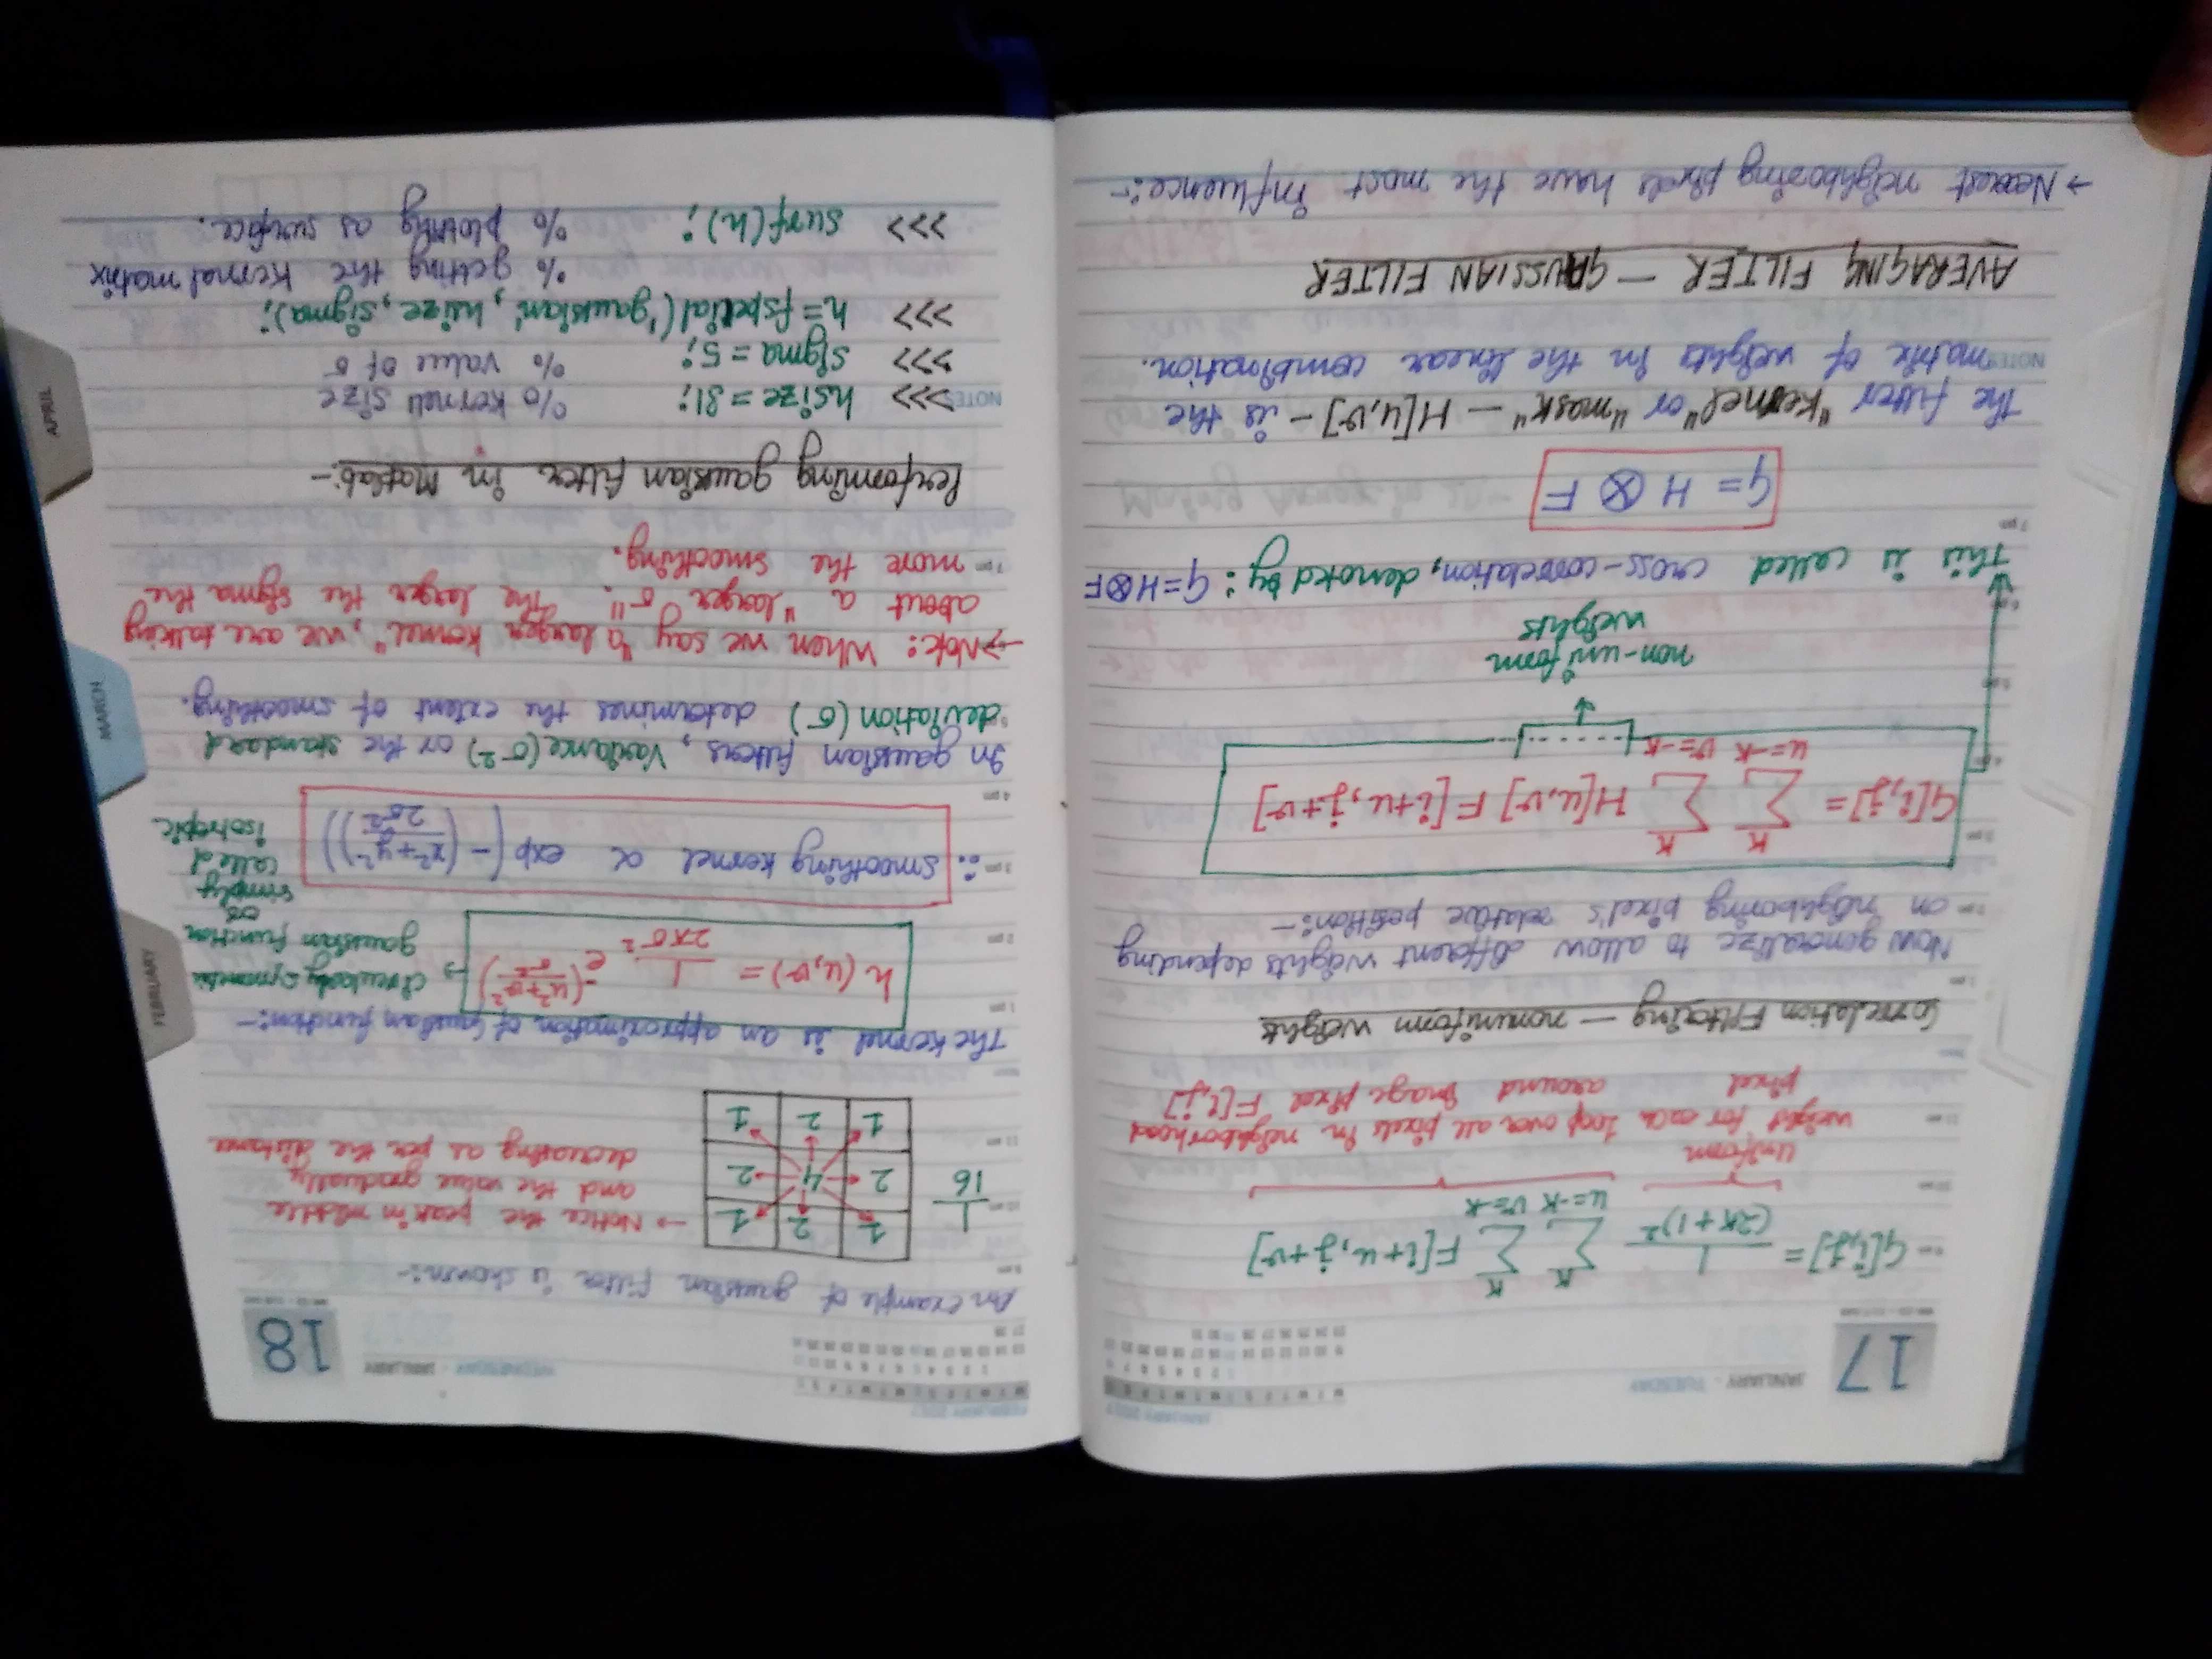 17
JANUARY - TUESDAY
JANUARY 2023
G[i,j] = 1/(2K+1)² Σ(u=-K to K) Σ(v=-K to K) F[i+u, j+v]
uniform weight for each pixel
loop over all pixels in neighborhood around image pixel F[i,j]
Correlation Filtering — nonuniform weights
Now generalize to allow different weights depending
on neighboring pixel's relative position:-
G[i,j] = Σ(u=-K to K) Σ(v=-K to K) H[u,v] F[i+u, j+v]
non-uniform
weights
This is called cross-correlation, denoted by: G=H⊗F
G = H ⊗ F
The filter "kernel" or "mask" — H[u,v] - is the
NOTES
matrix of weights in the linear combination.
AVERAGING FILTER — GAUSSIAN FILTER
→ Nearest neighboring pixels have the most influence:-
18
WEDNESDAY - JANUARY
FEBRUARY 2023
An example of gaussian filter is shown:-
1/16
1 2 1
2 4 2
1 2 1
→ Notice the peak in middle
and the value gradually
decreasing as per the distance
The kernel is an approximation of Gaussian function:-
h(u,v) = 1/(2πσ²) e^-((u²+v²)/σ²)
→ circularly symmetric
gaussian function
or
simply
called
isotropic
∴ smoothing kernel α exp(-((x²+y²)/2σ²))
In gaussian filters, Variance(σ²) or the standard
deviation(σ) determines the extent of smoothing.
→Note: When we say "a larger kernel", we are talking
about a "larger σ". The larger the sigma the
more the smoothing.
Performing gaussian filter in Matlab:-
NOTES
>>> hsize = 31; % kernel size
>>> sigma = 5; % value of σ
>>> h = fspecial('gaussian', hsize, sigma);
% getting the kernel matrix
>>> surf(h); % plotting as surface.
FEBRUARY
MARCH
APRIL